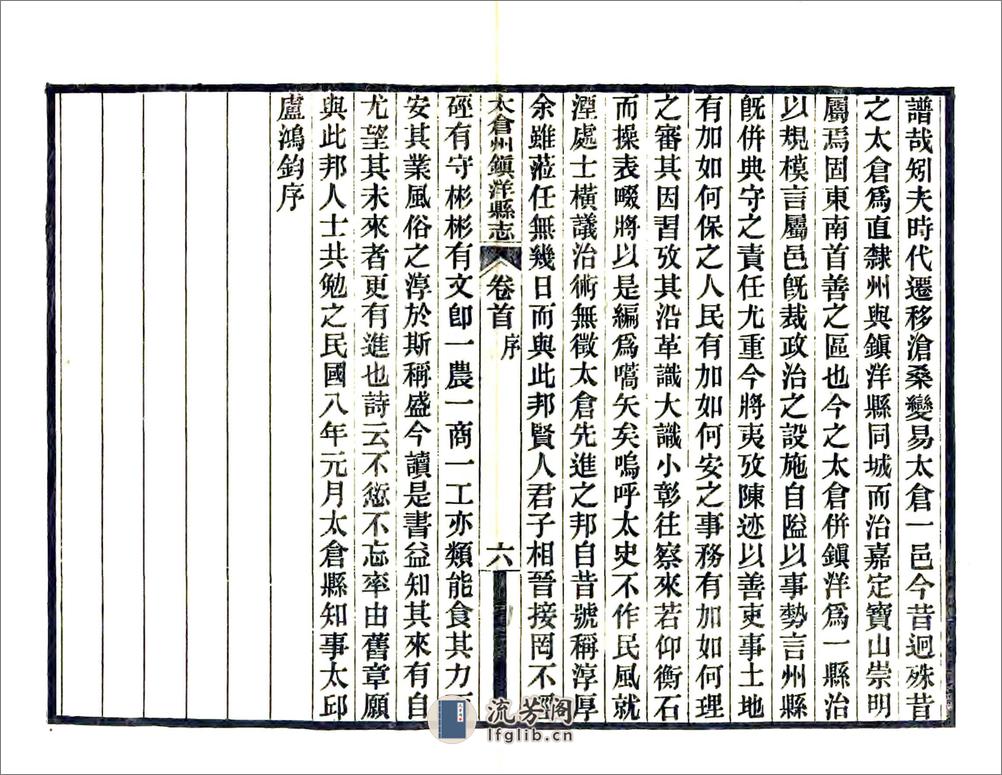 譜哉矧夫時代遷移滄桑變易太倉一邑今昔迥殊昔
之太倉爲直隸州與鎭洋縣同城而治嘉定寶山崇明
屬焉固東南首善之區也今之太倉併鎭洋爲一縣治
以規模言屬邑旣裁政治之設施自隘以事勢言州縣
旣併典守之責任尤重今將夷攷陳迹以善吏事土地
有加如何保之人民有加如何安之事務有加如何理
之審其因習攷其沿革識大識小彰往察來若仰衡石
而操表畷將以是編爲嚆矢矣嗚呼太史不作民風就
湮處士橫議治術無徵太倉先進之邦自昔號稱淳厚
余雖蒞任無幾日而與此邦賢人君子相晉接罔不
太倉州鎭洋縣志
卷首
序
六
硜有守彬彬有文卽一農一商一工亦類能食其力
安其業風俗之淳於斯稱盛今讀是書益知其來有自
尤望其未來者更有進也詩云不愆不忘率由舊章願
與此邦人士共勉之民國八年元月太倉縣知事太邱
盧鴻鈞序
流芳阁
lfglib.cn